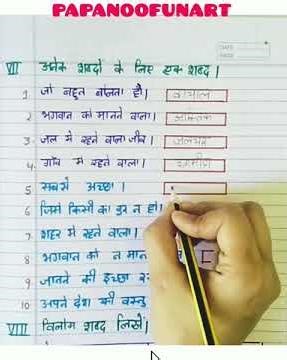 PAPANOOFUNART
VII अनेक शब्दों के लिए एक शब्द।
1. जो बहुत बोलता हो। वाचाल
2. भगवान को मानने वाला। आस्तिक
3. जल में रहने वाला जीव। जलचर
4. गाँव में रहने वाला। ग्रामीण
5. सबसे अच्छा।
6. जिसे किसी का डर न हो।
7. शहर में रहने वाला।
8. भगवान को न मान
9. जानने की इच्छा र
10. अपने देश की वस्तु
VIII विलोम शब्द लिखें।